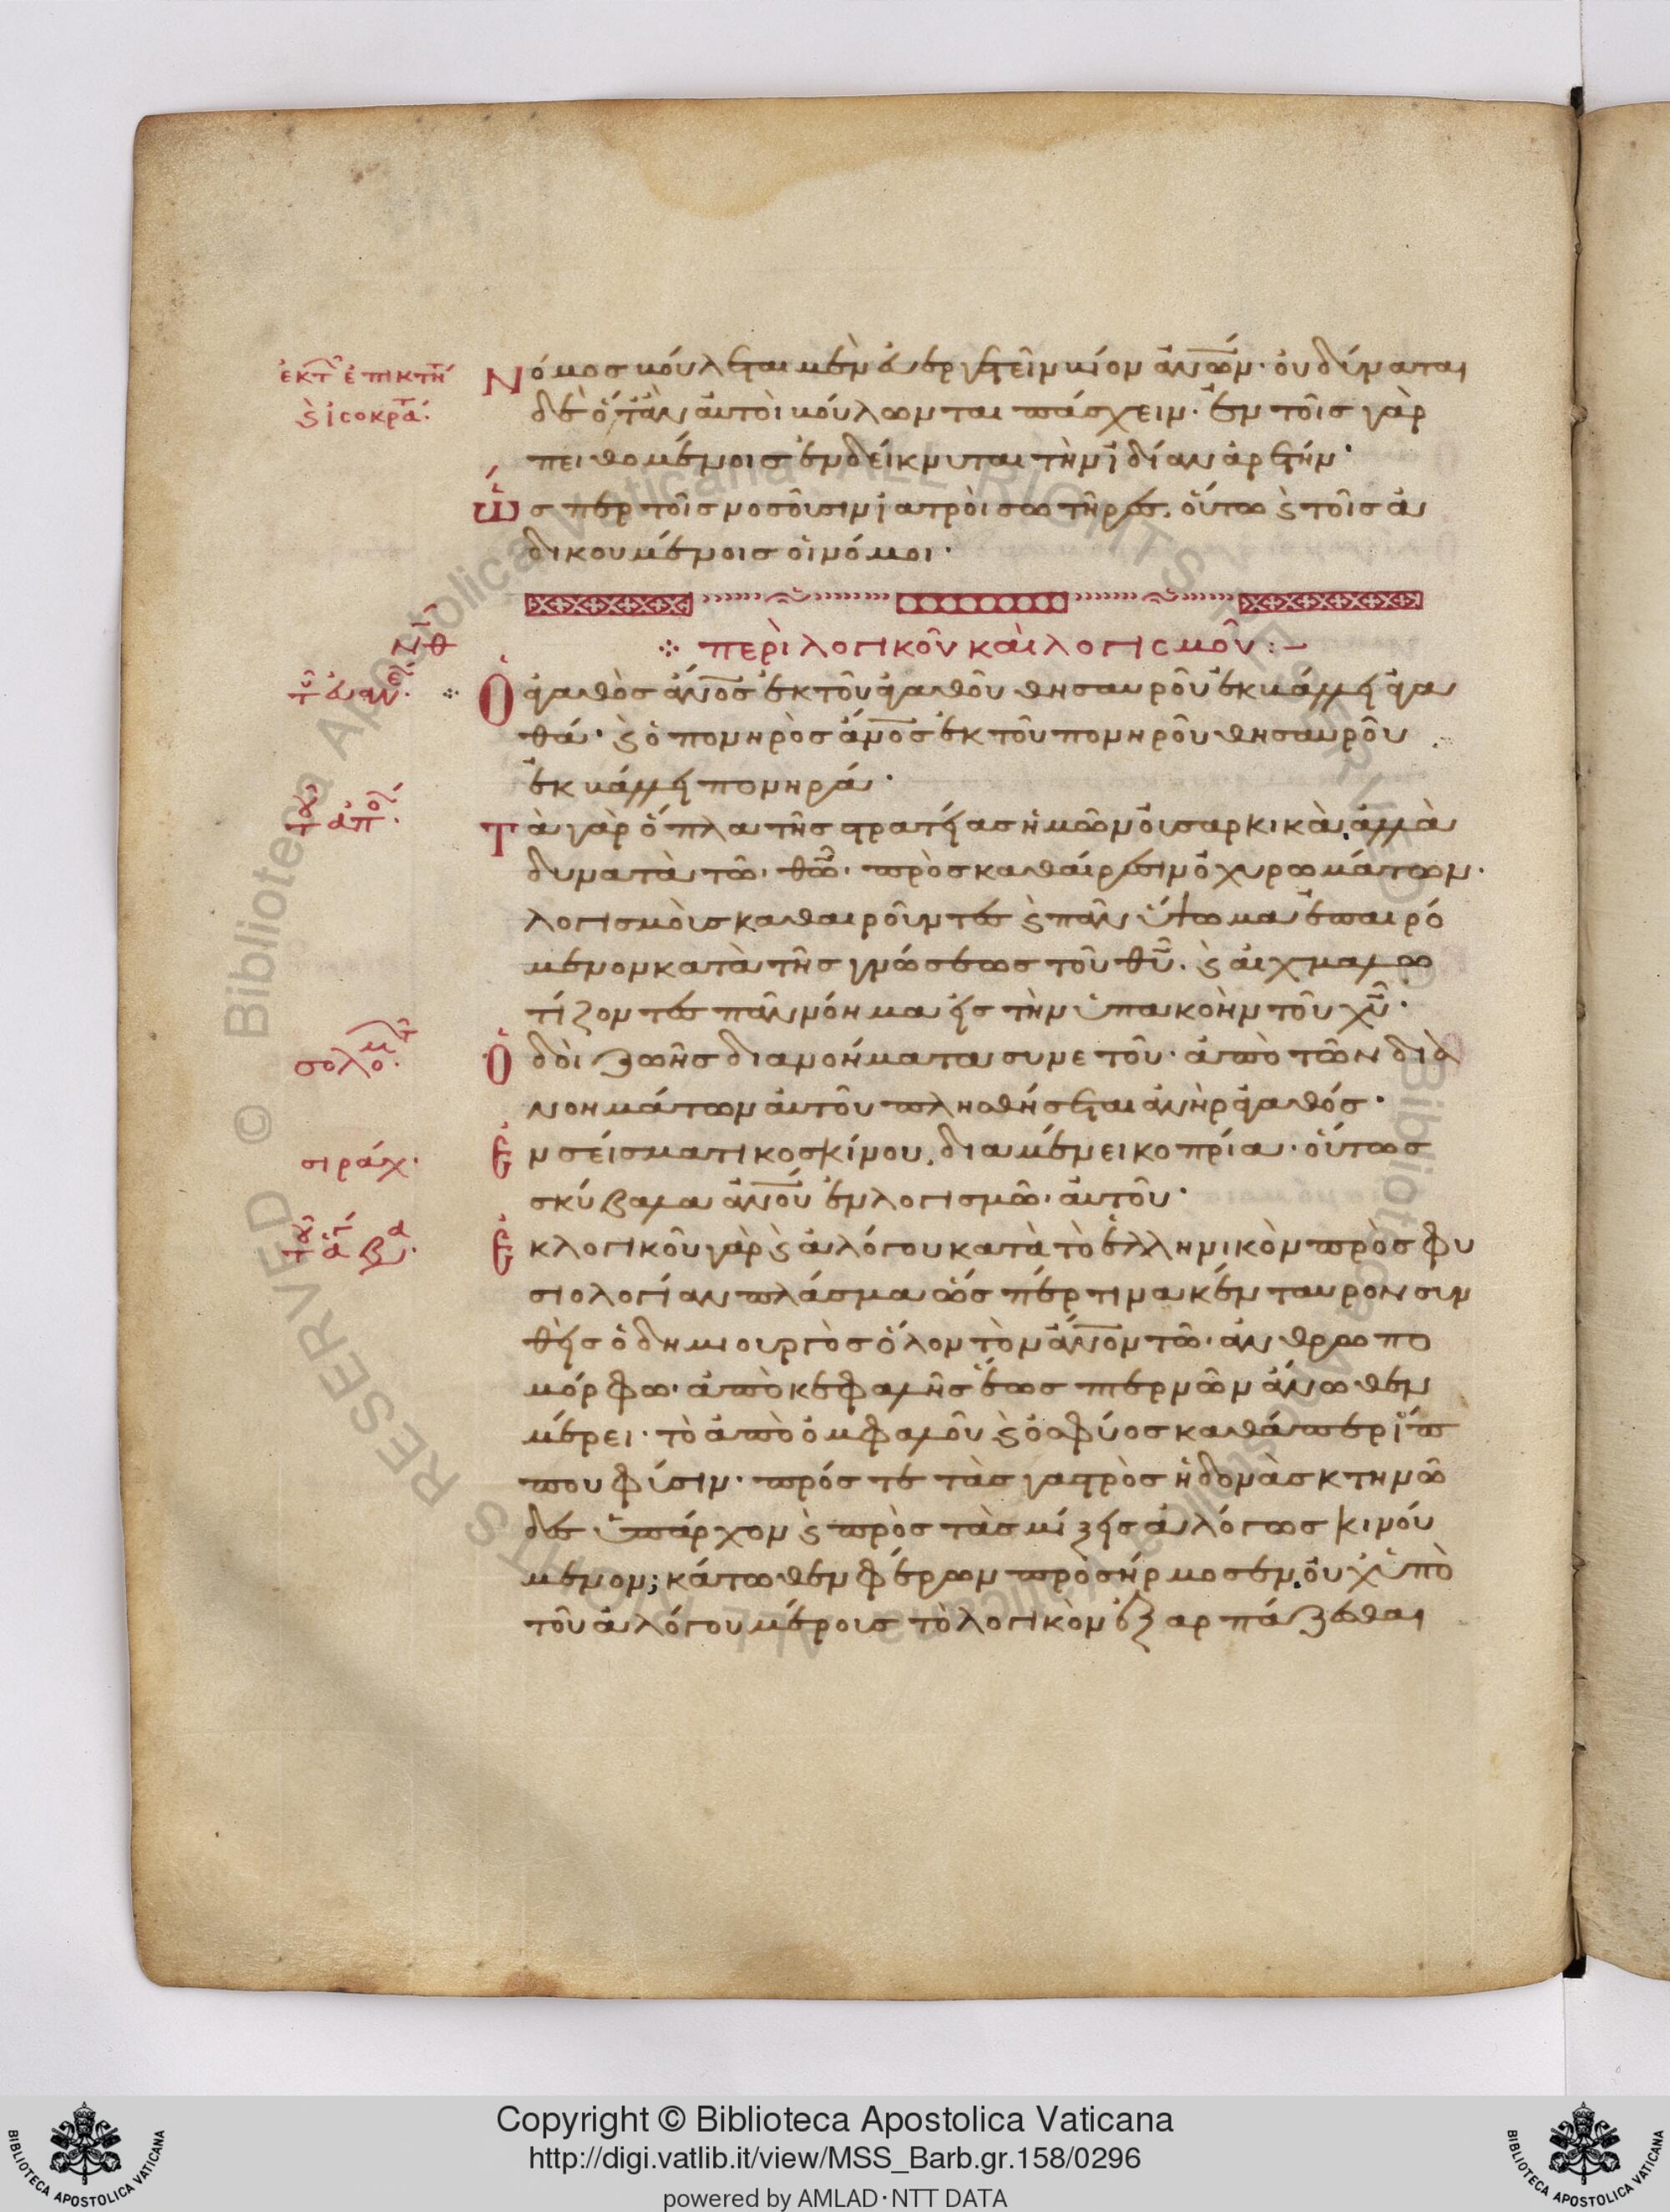 ἐκτ ἐπικτή
ϗ ἰσοκρα.
Νόμος βούλεται μὲν εὐεργετεῖν βίον ἀνων· οὐ δύναται
δὲ ὅταν αὐτοὶ βούλωνται πάσχειν· ἐν τοῖς γὰρ
πειθομένοις ἐνδείκνυται τὴν ἰδίαν ἀρετήν·
Ὥσπερ τοῖς νοσοῦσιν ἰατροὶ σωτῆρες. οὕτω ϗ τοῖς ἀ
δικουμένοις οἱ νόμοι·
περὶ λογικοῦ καὶ λογισμοῦ:
τ εὐαγ.
Ὁ ἀγαθὸς ἀνος ἐκ τοῦ ἀγαθοῦ θησαυροῦ ἐκβάλλει ἀγα
θά· ϗ ὁ πονηρὸς ἀνος ἐκ τοῦ πονηροῦ θησαυροῦ
ἐκβάλλει πονηρά·
τ απο.
Τὰ γὰρ ὅπλα τῆς στρατείας ἡμῶν οὐ σαρκικὰ, ἀλλὰ
δυνατὰ τῶ θῶ· πρὸς καθαίρεσιν ὀχυρωμάτων·
λογισμοὺς καθαιροῦντες ϗ πᾶν ὕψωμα ἐπαιρό
μενον κατὰ τῆς γνώσεως τοῦ θυ. ϗ αἰχμαλω
τίζοντες πᾶν νόημα εἰς τὴν ὑπακοὴν τοῦ χυ·
σολομ.
Ὁδοὶ ζωῆς διανοήματα συνετοῦ· ἀπὸ τῶν δια
νοημάτων αὐτοῦ πλησθήσεται ἀνὴρ ἀγαθός·
σιράχ.
Ἐν σείσματι κοσκίνου, διαμένει κοπρία· οὕτως
σκύβαλα ἀνου ἐν λογισμῶ αὐτοῦ·
Ἐκ λογικοῦ γὰρ ϗ ἀλόγου κατὰ τὸ ἑλληνικὸν πρὸς φυ
σιολογίαν πλάσμα ὥσπερ τινα κένταυρον συν
θεὶς ὁ δημιουργὸς ὅλον τὸν ἀνον τῶ ἀνθρωπο
μόρφω ἀπὸ κεφαλῆς ἕως στέρνων ἄνωθεν
μέρει· τὸ ἀπὸ ὀμφαλοῦ ϗ ὀσφύος καθάπερ ἵπ
που φύσιν· πρός τε τὰς γαστρὸς ἡδονὰς κτηνῶ
δες ὑπάρχον ϗ πρὸς τὰς μίξεις ἀλόγως κινού
μενον; κάτωθεν φέρων προσήρμοσεν, οὐχ ὑπὸ
τοῦ ἀλόγου μέρους τὸ λογικὸν ἐξαρπάζεσθαι
© Biblioteca Apostolica Vaticana ALL RIGHTS RESERVED
Copyright © Biblioteca Apostolica Vaticana
http://digi.vatlib.it/view/MSS_Barb.gr.158/0296
powered by AMLAD·NTT DATA
BIBLIOTECA APOSTOLICA VATICANA
BIBLIOTECA APOSTOLICA VATICANA